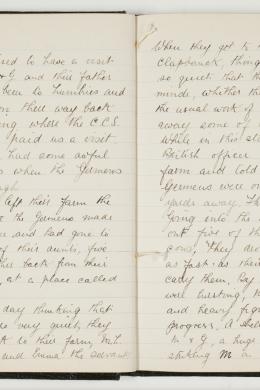 ised to have a visit
& G and their father
been to Cumbries and
on their way back
ing where the C.C.S.
paid us a visit.
had some awful
s when the Germans
ugh
left their farm the
the Germans made
and had gone to
f their aunts, five
back from their
, at a place called
day thinking that
very quiet, they
k to their farm, M.L.
and Emma the servant
When they got to
Clapbanck, things
so quiet that th
minds, whether th
the usual work of
away some of
While in this st
British officer
farm and told
Germans were on
yards away. Th
Going into the
out five of th
cows. They dro
as fast as their
carry them, Gay
were bursting, th
and heavy figh
progress. A shel
M & G, a huge
striking M in